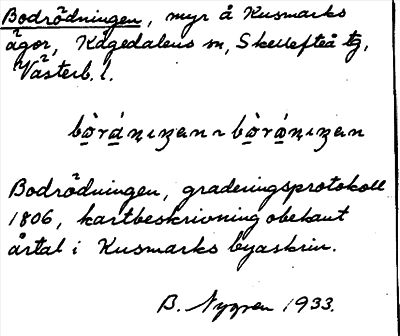 Bodrödningen, myr å Kusmarks
ägor, Kågedalens sn, Skellefteå tg,
Västerb. l.
Bodrödningen, graderingsprotokoll
1806, kartbeskrivning obekant
årtal i Kusmarks byaskrin.
B. Nygren 1933.